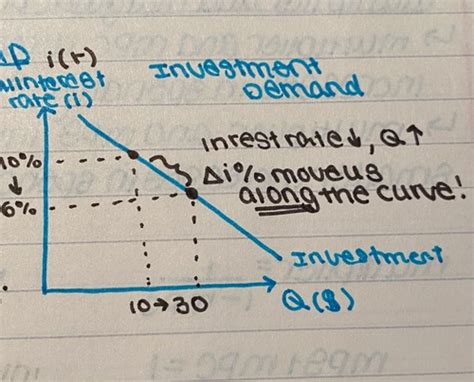 i(r)
interest
rate (i)
Investment
Demand
10%
↓
6%
inrest rate↓, Q↑
Δi% moves us
along the curve!
Investment
10→30
Q($)